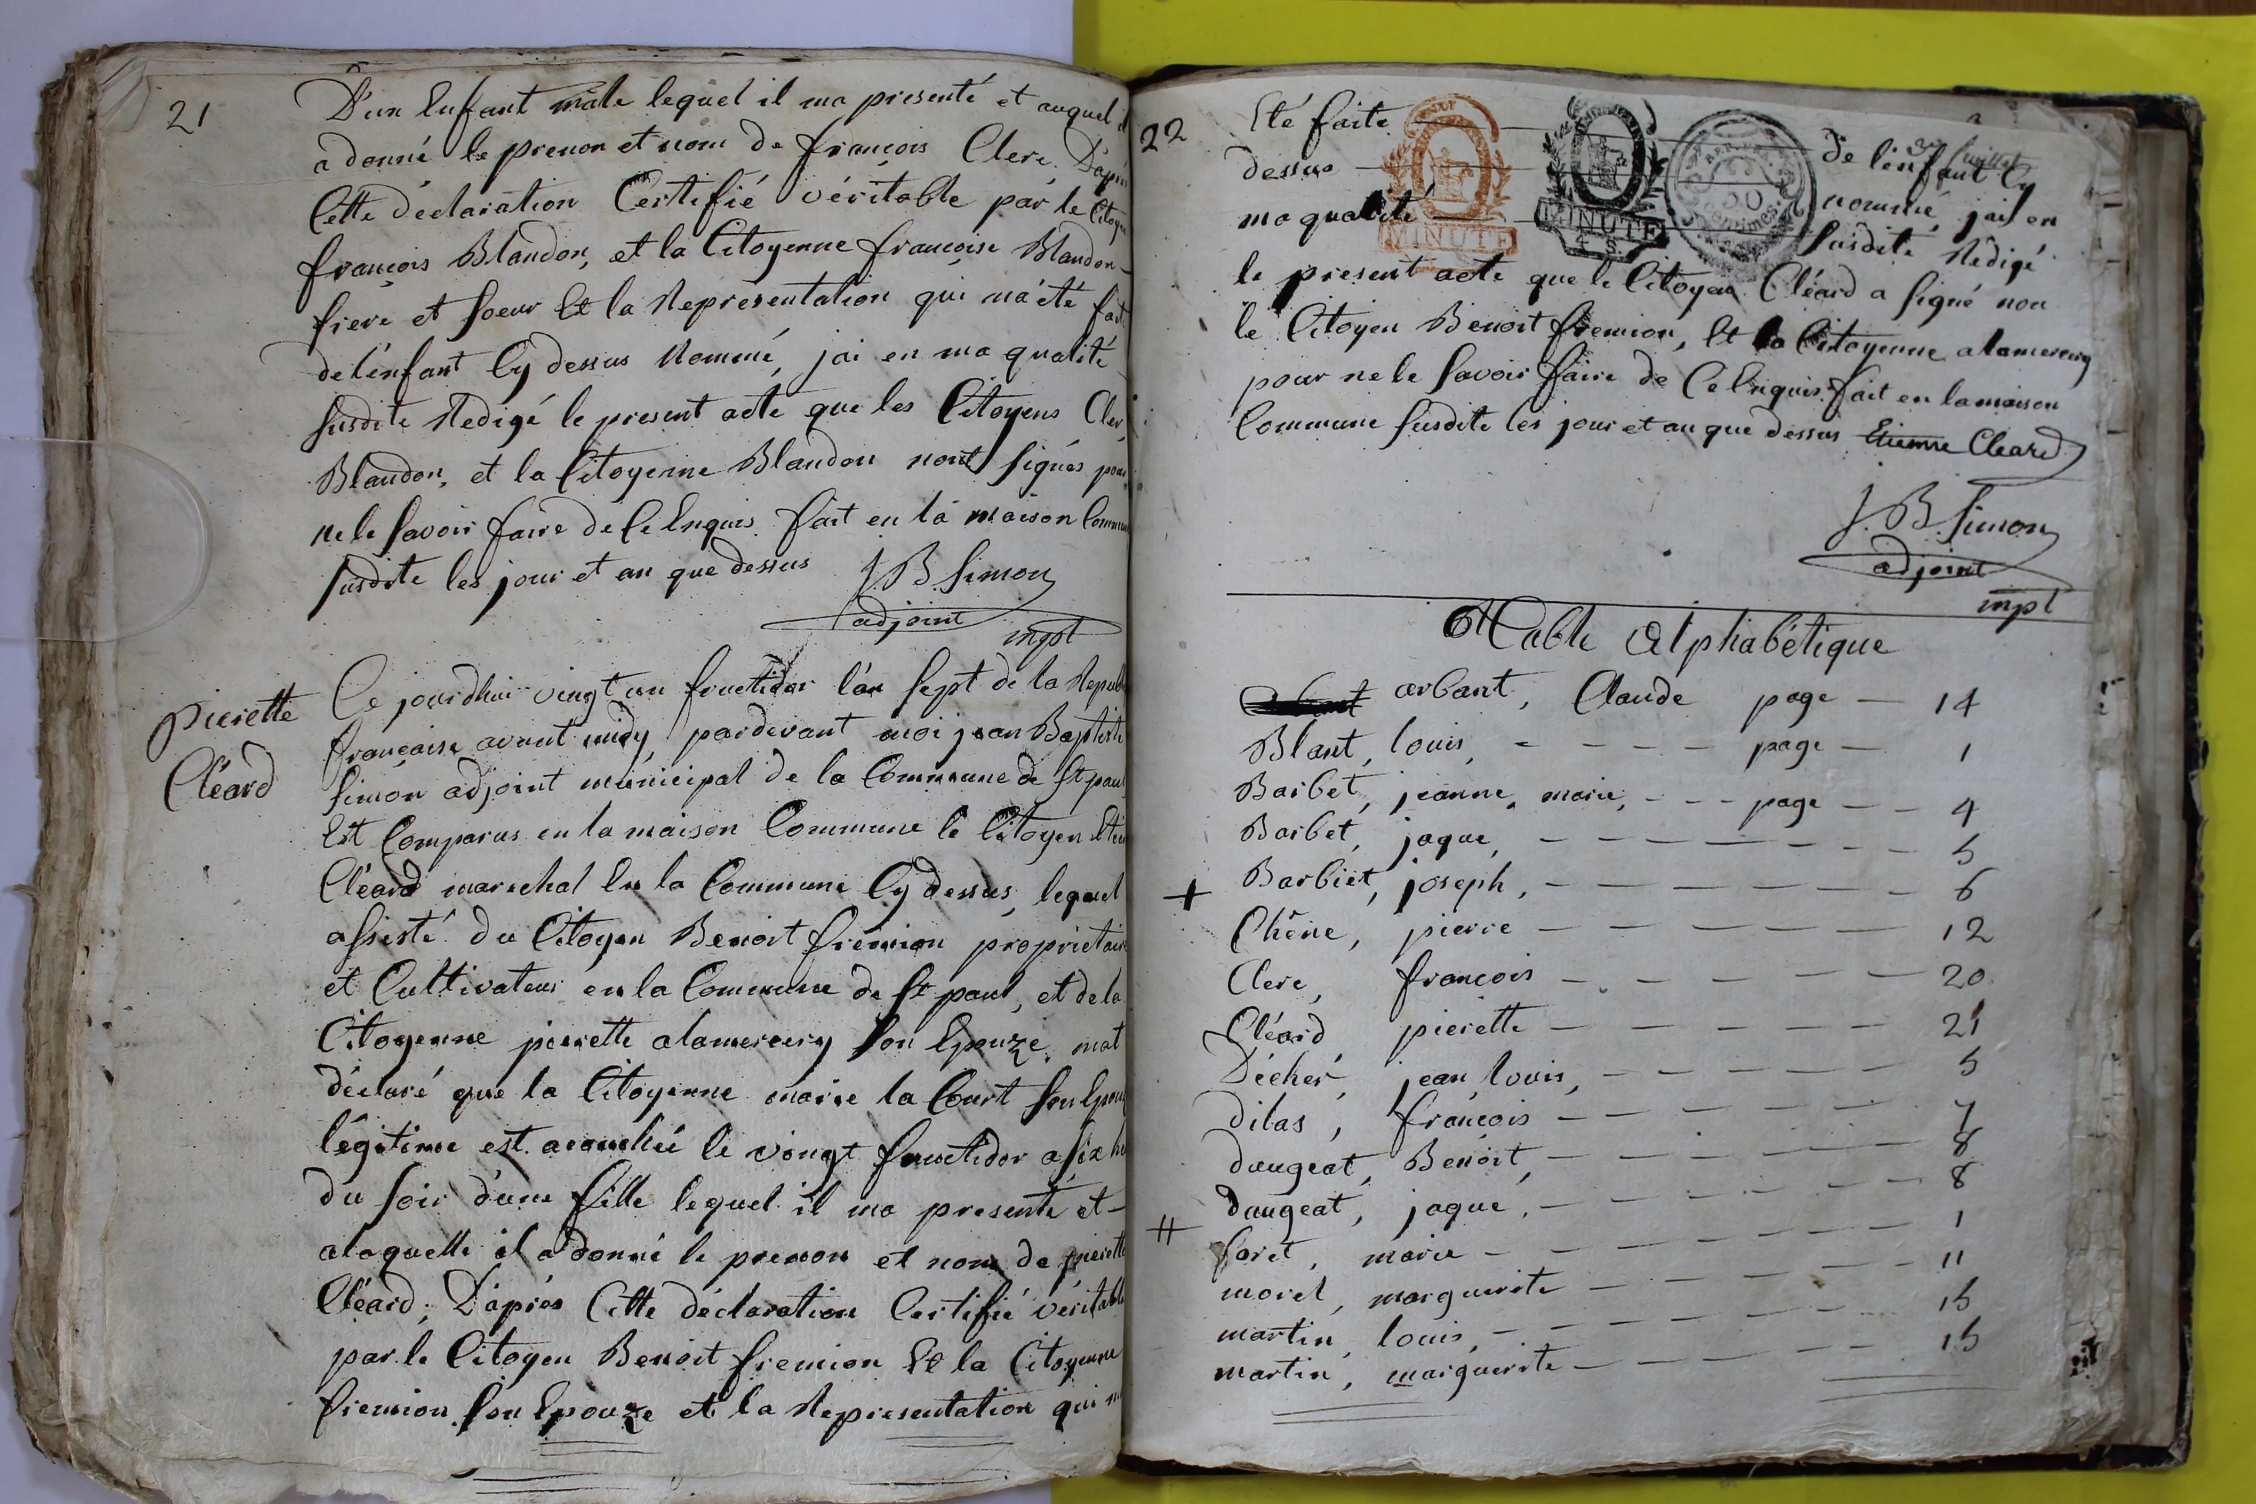 21
D'un Enfant mâle lequel il ma presenté et auquel il
a donné le prenon et nom de françois Clerc, D'aprés
Cette déclaration Certifié véritable par le Citoyen
françois Blandon, et la Citoyenne françoise Blandon
frere et soeur Et la Representation qui ma été fait
de l'enfant Cy dessus Nommé, jai en ma qualité
susdite Redigé le present acte que les Citoyens Clerc,
Blandon, et la Citoyenne Blandon nont signés pour
ne le savoir faire de Ce Enquis fait en la maison Commune
susdite les jour et an que dessus J. B. Simon
adjoint
mpl
pierette
Cléard
Ce jourdhui vingt un fructidor l'an sept de la Republ
francaise avant midy, pardevant moi jean Baptiste
Simon adjoint municipal de la Commune de St paul,
Est Comparus en la maison Commune le Citoyen Etien
Cléard marechal En la Commune Cy dessus, lequel
assisté du Citoyen Benoit fremion propriétaire
et Cultivateur en la Commune de St paul, et de la
Citoyenne pierette alamercery son Epouze, mat
déclaré que la Citoyenne marie la Court son Epouze
légitime est acouchée le vingt fructidor a six he
du soir d'une fille lequel il ma presenté et
alaquelle il a donné le prenon et nom de pierette
Cléard; D'aprés Cette déclaration Certifié véritable
par le Citoyen Benoit fremion Et la Citoyenne
fremion son Epouze et la Representation qui m
22
Eté faite de l'enfant Cy
dessus nommé, jai en
ma qualité susdite Redigé
MINUTE
MINUTE
4 S.
50
Centimes
le present acte que le Citoyen Cléard a signé non
le Citoyen Benoit fremion, Et la Citoyenne alamercery
pour ne le savoir faire de Ce Enquis fait en la maison
Commune susdite les jour et an que dessus Etienne Cleard
J. B. Simon
adjoint
mpl
Table Alphabétique
arbant, Claude page 14
Blant, louis, page 1
Barbet, jeanne, marie, page 4
Barbet, jaque, 5
Barbiét, joseph, 6
Chêne, pierre 12
Clerc, francois 20
Cléard pierette 21
Décher, jean louis, 5
dilas, francois 7
daugeat, Benoit, 8
daugeat, jaque, 8
foret, marie 1
morel, marguerite 11
martin, louis, 15
martin, marguerite 15